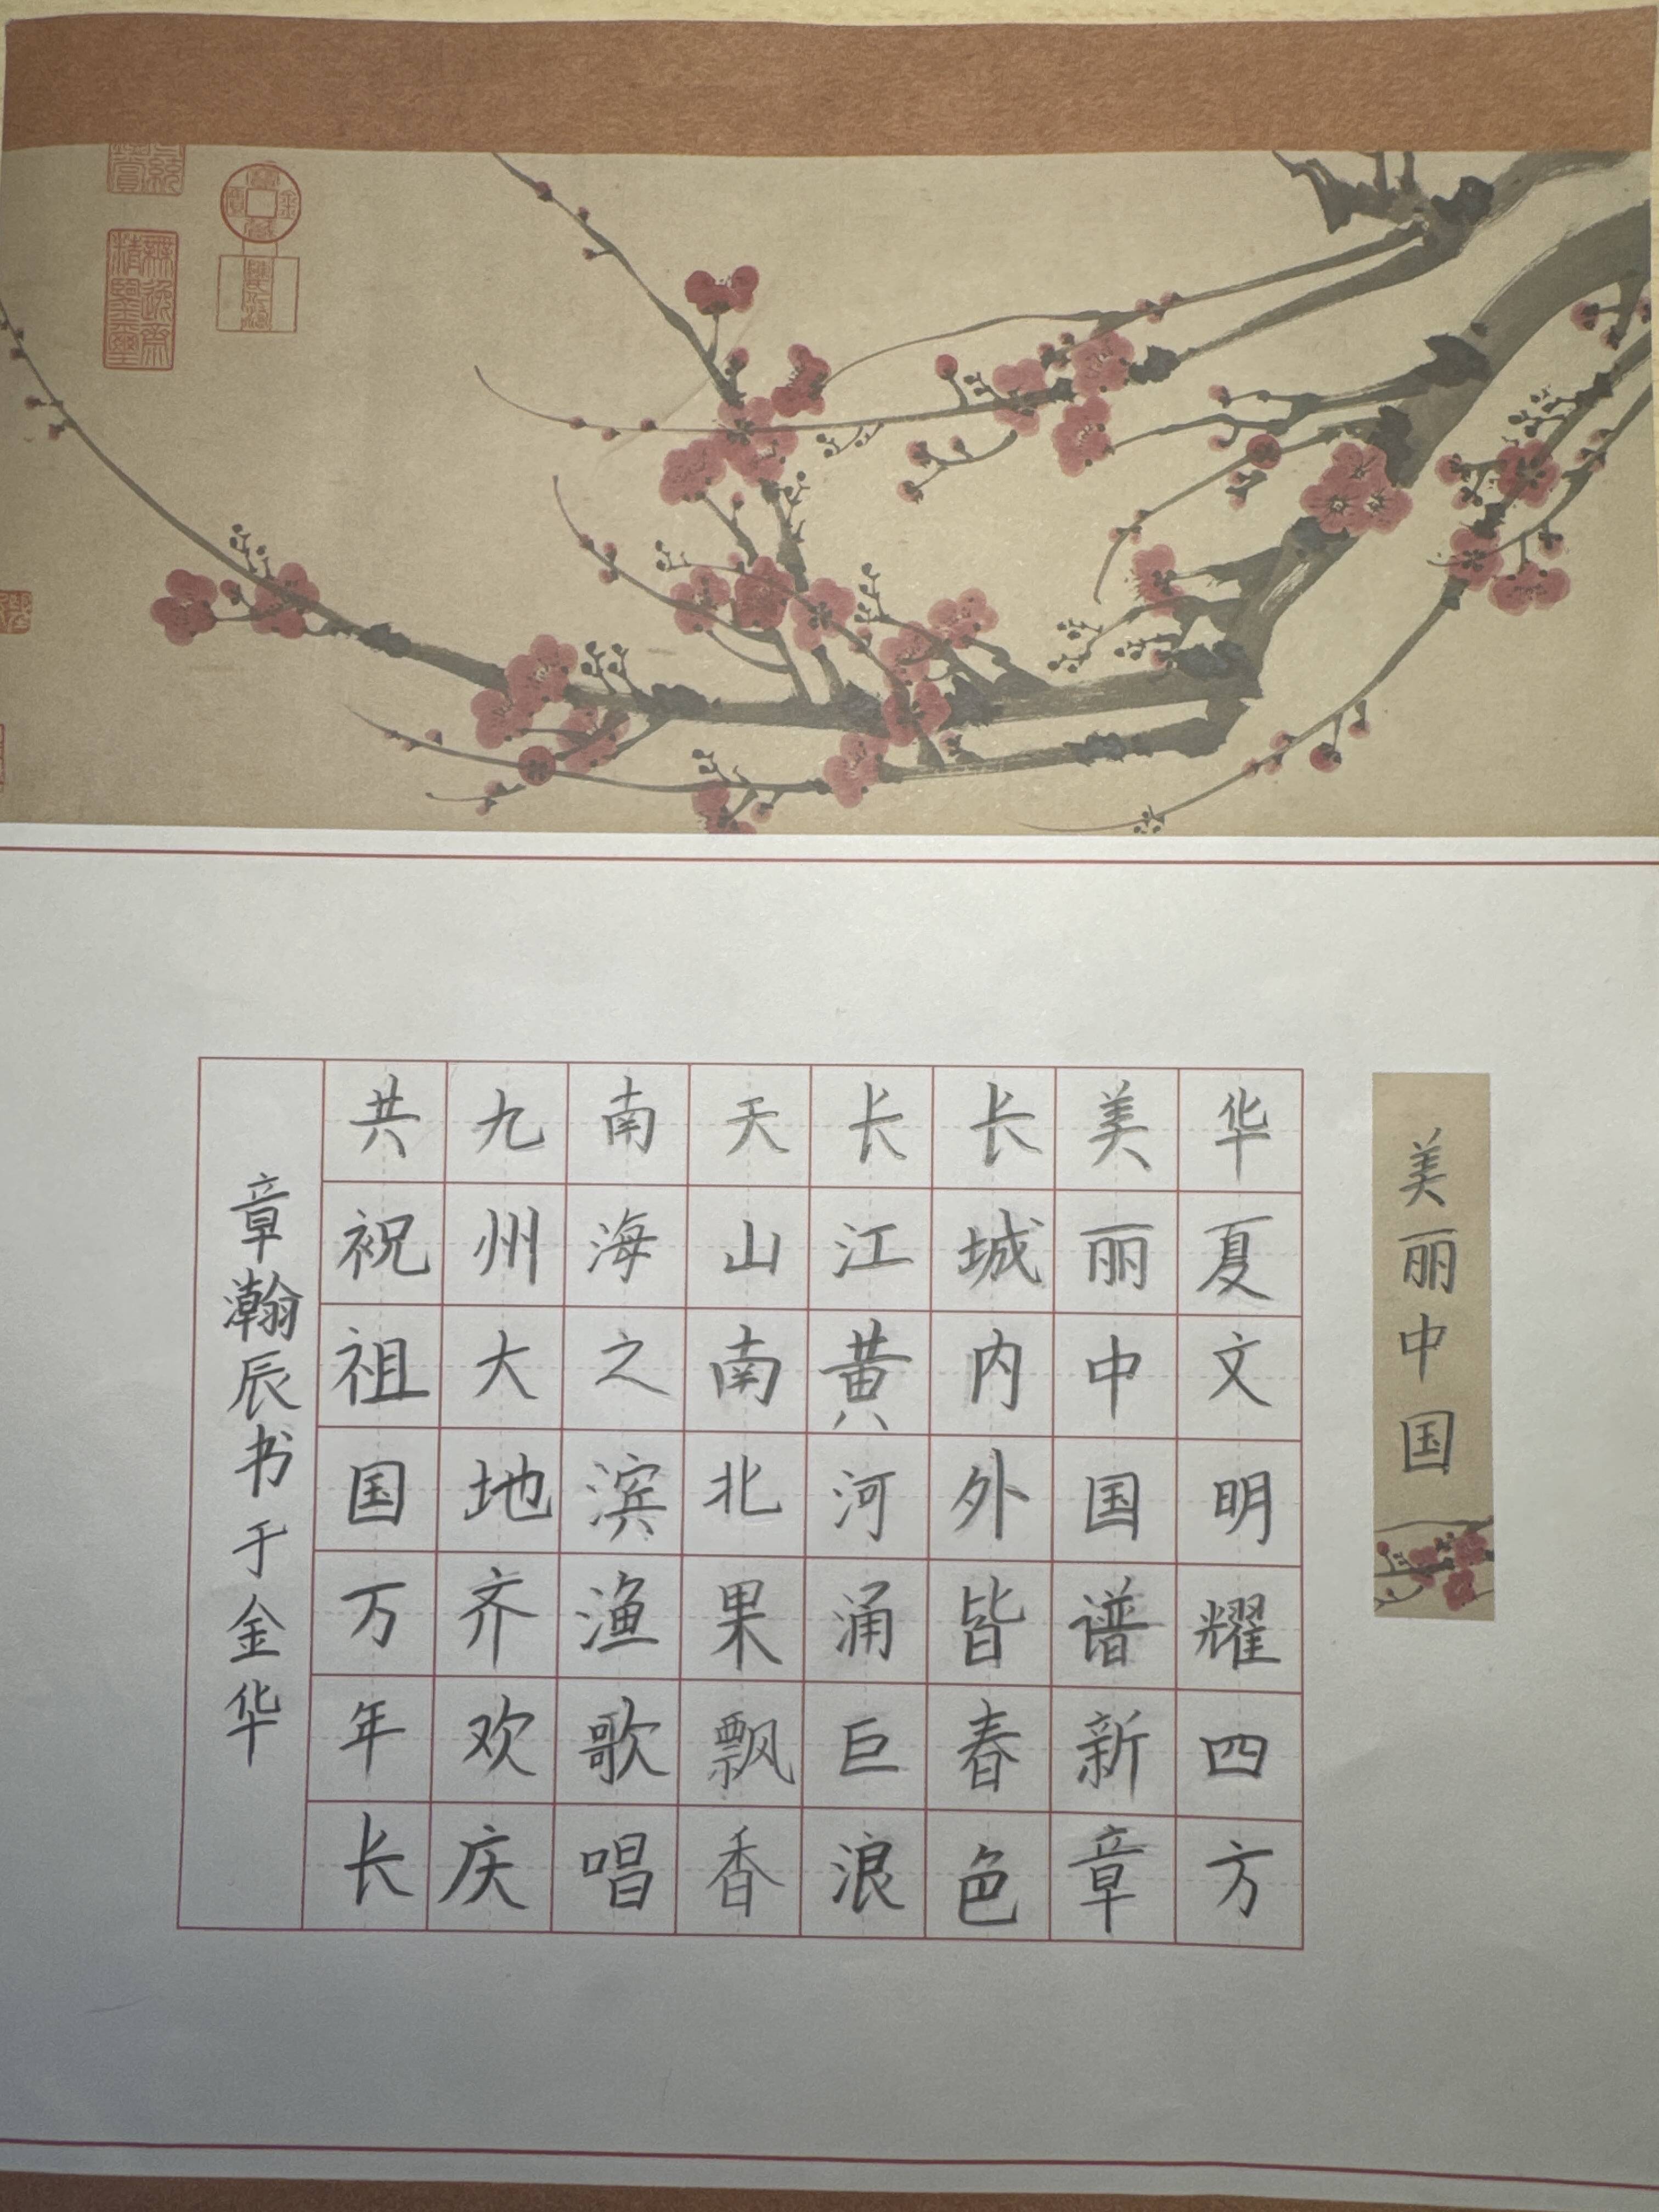 美丽中国
华夏文明耀四方
美丽中国谱新章
长城内外皆春色
长江黄河涌巨浪
天山南北果飘香
南海之滨渔歌唱
九州大地齐欢庆
共祝祖国万年长
章瀚辰书于金华